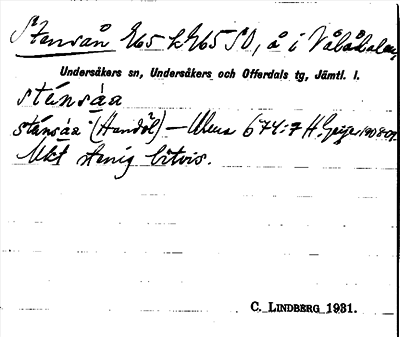 Stensån 965 k 965 SO, å i Vålådalen,
Undersåkers sn, Undersåkers och Offerdals tg, Jämtl. l.
sténsáa
sténsáa (Handöl) — Ulma 674:7 H. Geijer 1908-09.
Mkt stenig bitvis.
C. LINDBERG 1931.